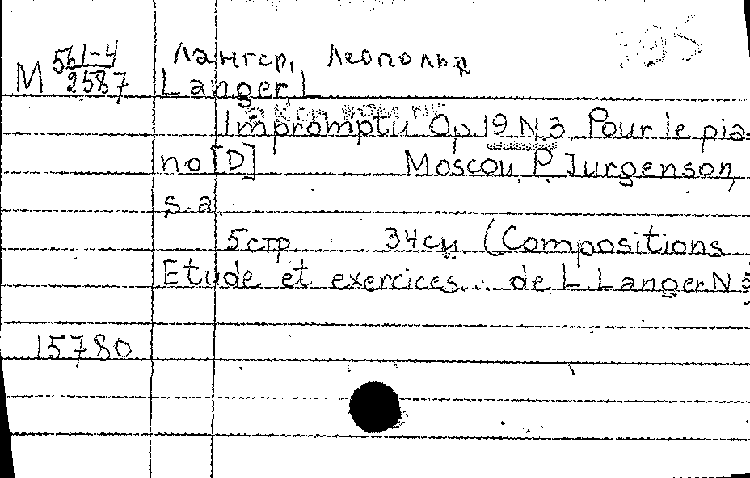 М 561-4
2587
Лангер, Леопольд
Langer L
Impromptu Op 19 N 3 Pour le pia-
no [D] Moscou, P Jurgenson,
s. a
5 стр. 34 см (Compositions
Etude et exercices... de L. Langer N
15780